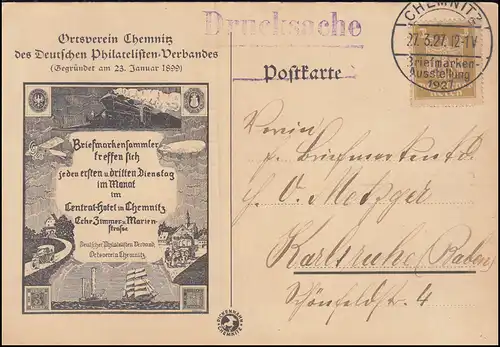 Ortsverein Chemnitz
des Deutschen Philatelisten-Verbandes
(Gegründet am 23. Januar 1899)
Drucksache
Postkarte
CHEMNITZ
27.3.27.12-1V
Briefmarken-
Ausstellung
1927
Briefmarkensammler
treffen sich
jeden ersten u. dritten Dienstag
im Monat
im
Central-Hotel in Chemnitz
Ecke Zimmer- u. Marien-
strasse
Deutscher Philatelisten-Verband
Ortsverein Chemnitz
Verein
f. Briefmarken
O. Metzger
Karlsruhe (Baden)
Schönfeldstr. 4
CHEMNITZ